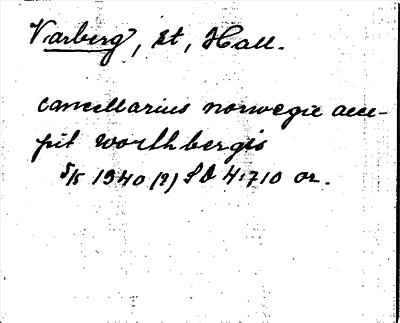 Varberg, st, Hall.
cancellarius norwegie acce-
pit worthbergis
5/5 1340 (?) SD 4:710 or.